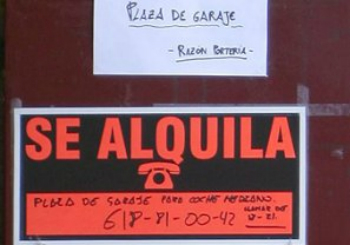 PLAZA DE GARAJE
- RAZÓN PORTERÍA -
SE ALQUILA
PLAZA DE GARAJE PARA COCHE MEDIANO.
LLAMAR DE
618-81-00-42
18-21